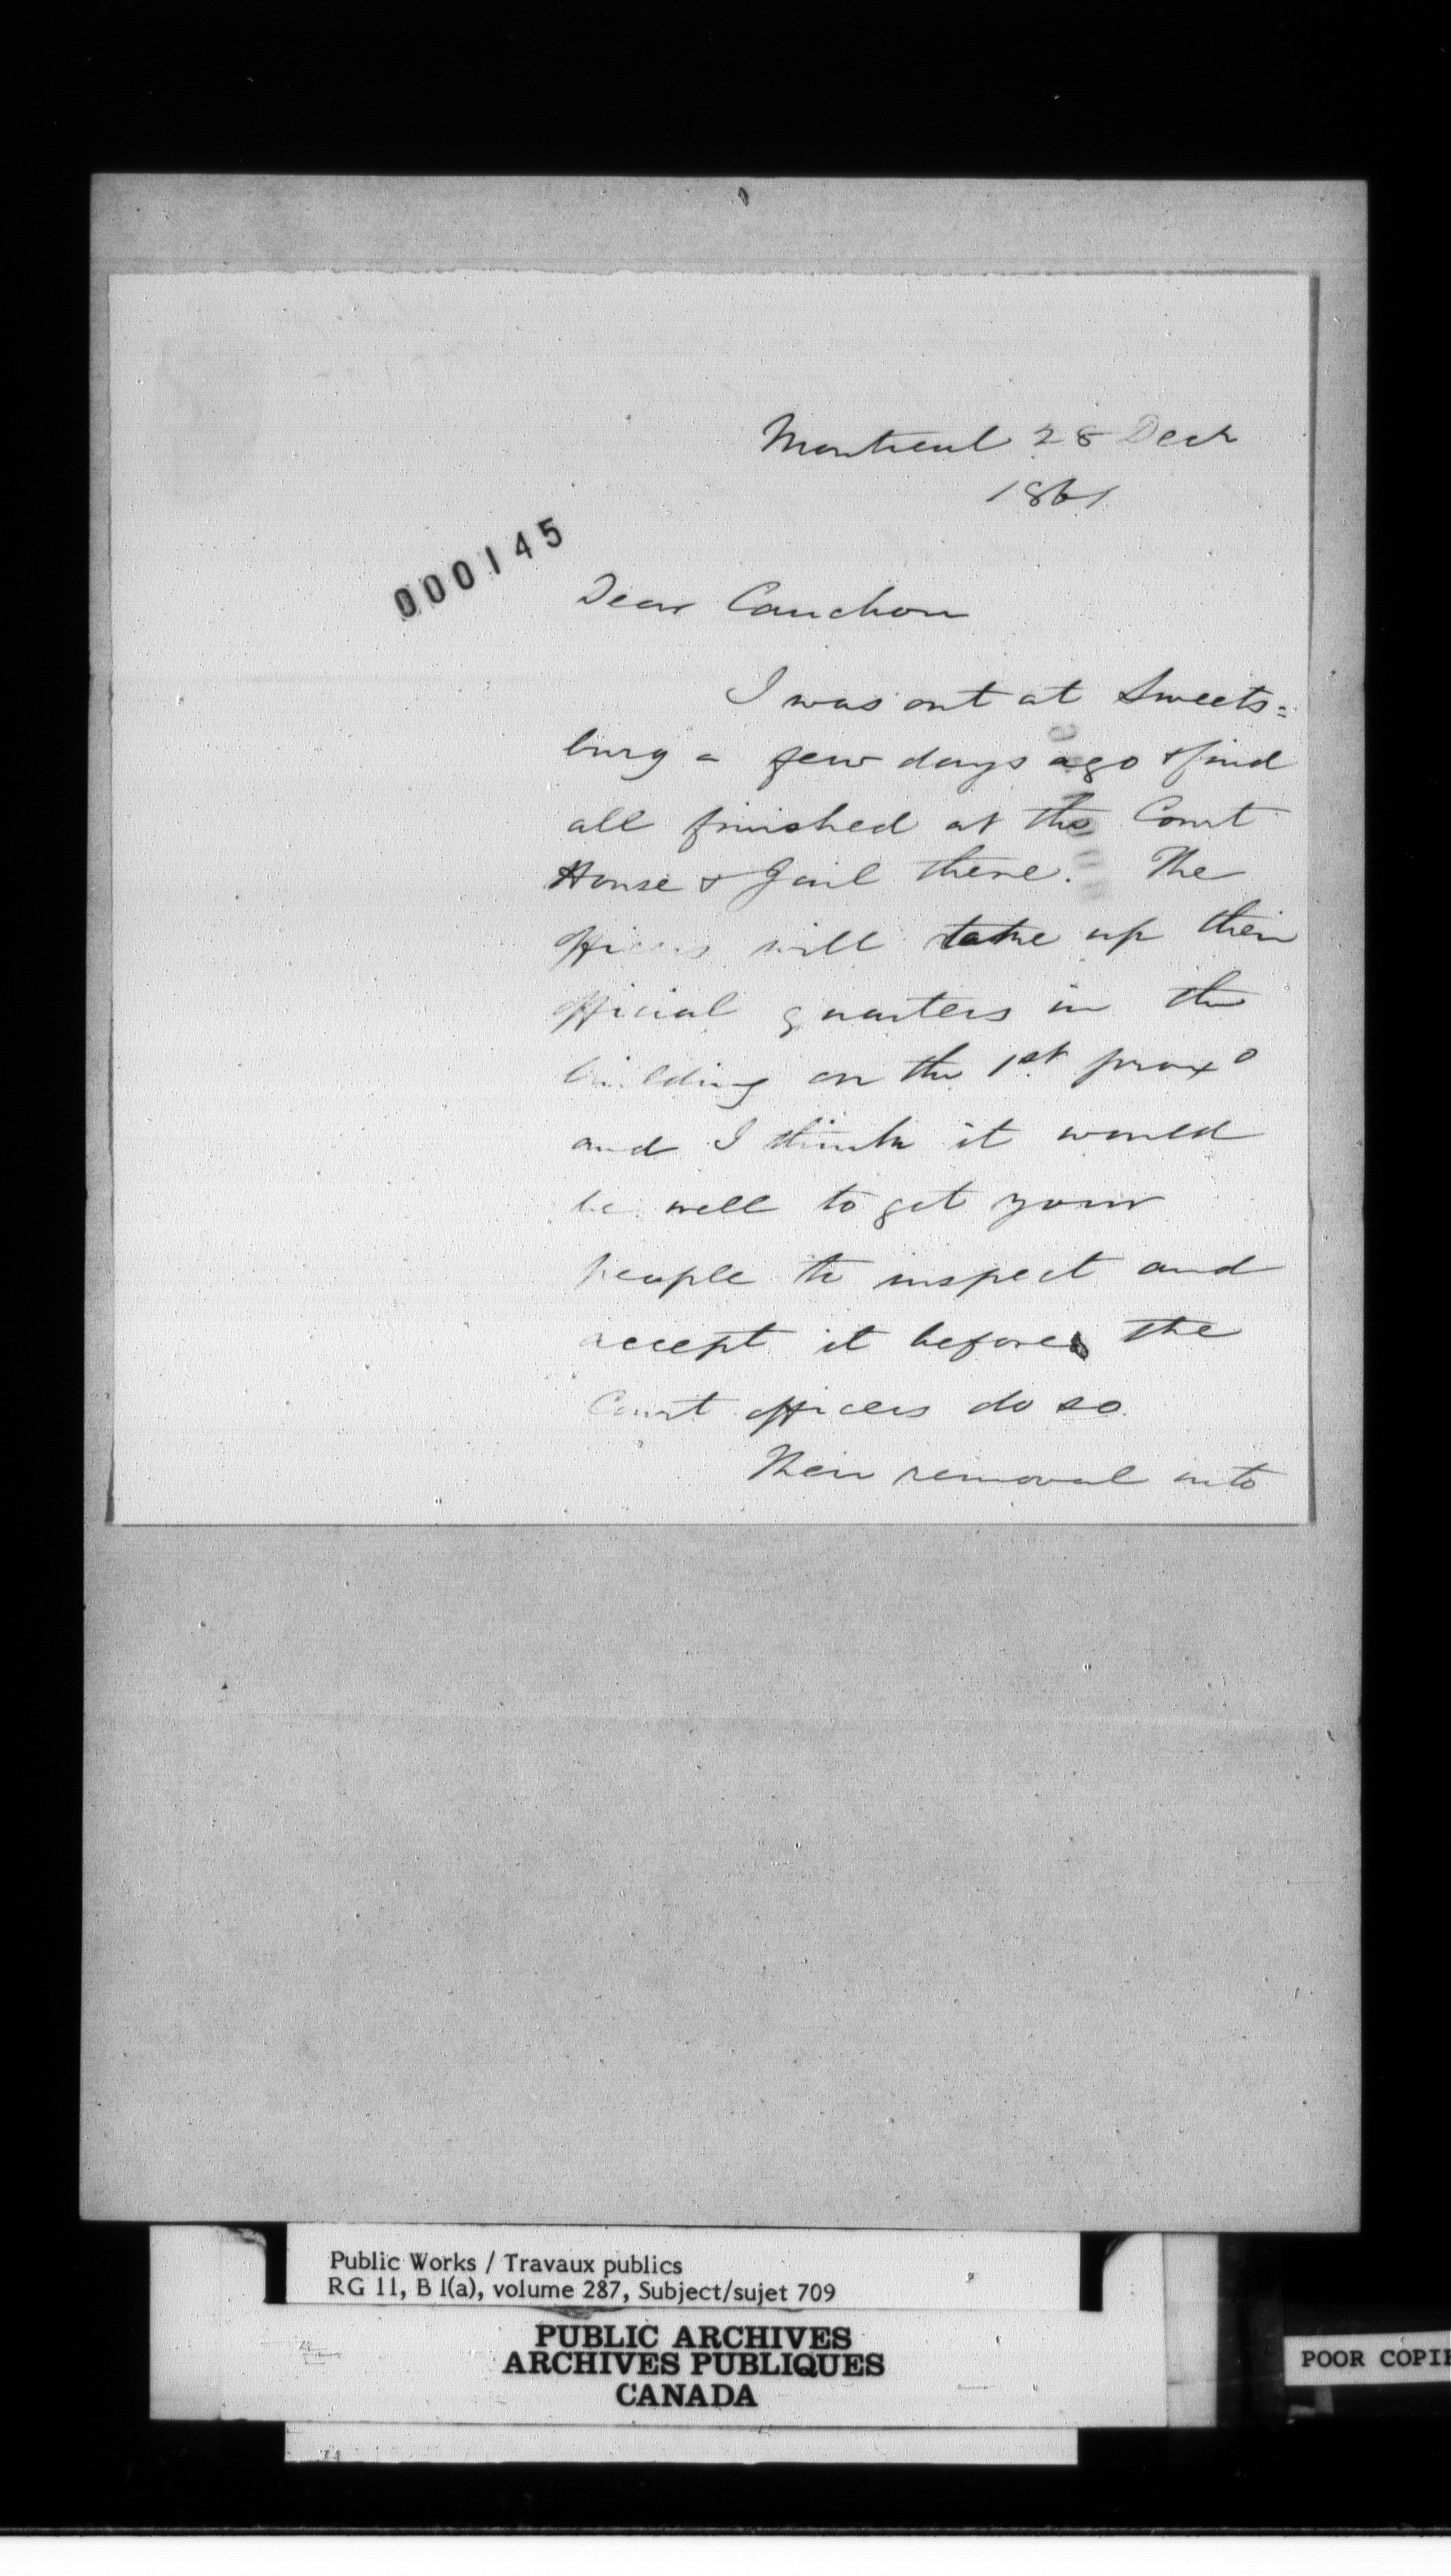 Montreal 28 Decr
1861
000145
Dear Cauchon
I was out at Sweets=
burg a few days ago & find
all finished at the Court
House & Jail there. The
officers will take up their
official quarters in the
building on the 1st proxo
and I think it would
be well to get your
people to inspect and
accept it before the
Court officers do so.
Their removal into
Public Works / Travaux publics
RG 11, B 1(a), volume 287, Subject/sujet 709
PUBLIC ARCHIVES
ARCHIVES PUBLIQUES
CANADA
POOR COPIE